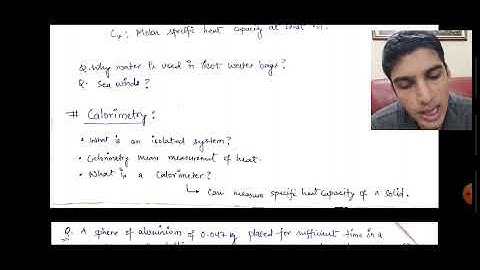 Cp : Molar specific heat capacity at const
Q. Why water is used in hot water bags?
Q. Sea winds?
# Calorimetry:
• What is an isolated system?
• Calorimetry mean measurement of heat.
• What is a Calorimeter?
↳ Can measure specific heat capacity of a solid.
Q. A sphere of aluminium of 0.047 kg placed for sufficient time in a